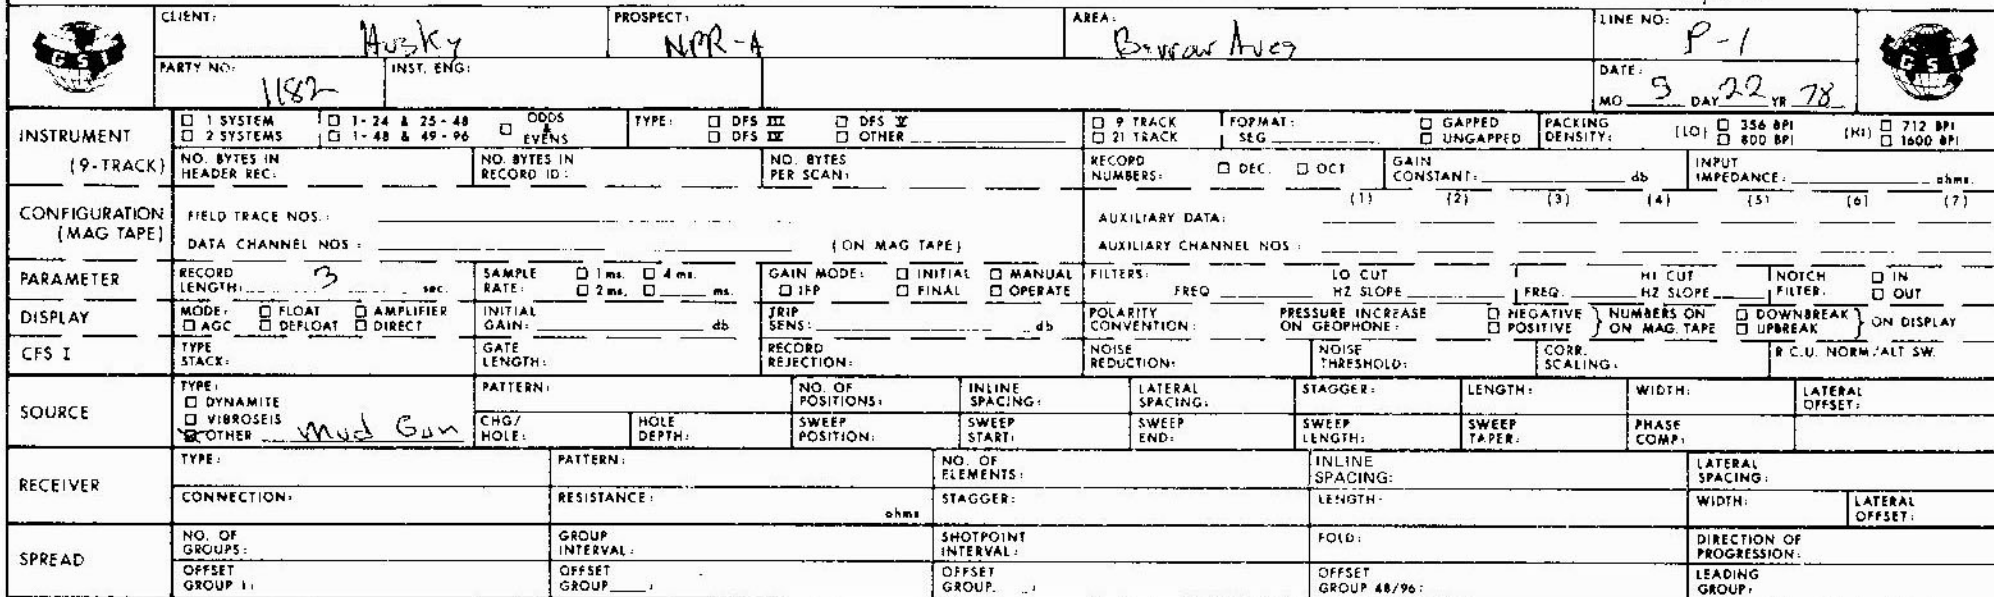 CLIENT: Husky PROSPECT: NPR-A AREA: Barrow Area LINE NO: P-1
GSI GSI
PARTY NO: 1182 INST. ENG: DATE: MO 5 DAY 22 YR 78
INSTRUMENT (9-TRACK) □ 1 SYSTEM □ 1-24 & 25-48 □ ODDS & EVENS TYPE: □ DFS III □ DFS V □ 9 TRACK FORMAT: □ GAPPED PACKING DENSITY: (LO) □ 356 BPI (HI) □ 712 BPI
□ 2 SYSTEMS □ 1-48 & 49-96 □ DFS IV □ OTHER □ 21 TRACK SEG □ UNGAPPED □ 800 BPI □ 1600 BPI
NO. BYTES IN HEADER REC: NO. BYTES IN RECORD ID: NO. BYTES PER SCAN: RECORD NUMBERS: □ DEC. □ OCT GAIN CONSTANT: db INPUT IMPEDANCE: ohms.
CONFIGURATION (MAG TAPE) FIELD TRACE NOS.: AUXILIARY DATA: (1) (2) (3) (4) (5) (6) (7)
DATA CHANNEL NOS: (ON MAG TAPE) AUXILIARY CHANNEL NOS:
PARAMETER RECORD LENGTH: 3 sec. SAMPLE RATE: □ 1 ms. □ 4 ms. □ 2 ms. □ ms. GAIN MODE: □ INITIAL □ MANUAL □ IFP □ FINAL □ OPERATE FILTERS: FREQ LO CUT HZ SLOPE FREQ. HI CUT HZ SLOPE NOTCH FILTER. □ IN □ OUT
DISPLAY MODE: □ FLOAT □ AMPLIFIER □ AGC □ DEFLOAT □ DIRECT INITIAL GAIN: db TRIP SENS: db POLARITY CONVENTION: PRESSURE INCREASE ON GEOPHONE: □ NEGATIVE □ POSITIVE } NUMBERS ON ON MAG. TAPE □ DOWNBREAK □ UPBREAK } ON DISPLAY
CFS I TYPE STACK: GATE LENGTH: RECORD REJECTION: NOISE REDUCTION: NOISE THRESHOLD: CORR. SCALING: R.C.U. NORM/ALT SW.
SOURCE TYPE: □ DYNAMITE □ VIBROSEIS ☒ OTHER Mud Gun PATTERN: NO. OF POSITIONS: INLINE SPACING: LATERAL SPACING: STAGGER: LENGTH: WIDTH: LATERAL OFFSET:
CHG/HOLE: HOLE DEPTH: SWEEP POSITION: SWEEP START: SWEEP END: SWEEP LENGTH: SWEEP TAPER: PHASE COMP:
RECEIVER TYPE: PATTERN: NO. OF ELEMENTS: INLINE SPACING: LATERAL SPACING:
CONNECTION: RESISTANCE: ohms STAGGER: LENGTH: WIDTH: LATERAL OFFSET:
SPREAD NO. OF GROUPS: GROUP INTERVAL: SHOTPOINT INTERVAL: FOLD: DIRECTION OF PROGRESSION:
OFFSET GROUP 1: OFFSET GROUP : OFFSET GROUP : OFFSET GROUP 48/96: LEADING GROUP: